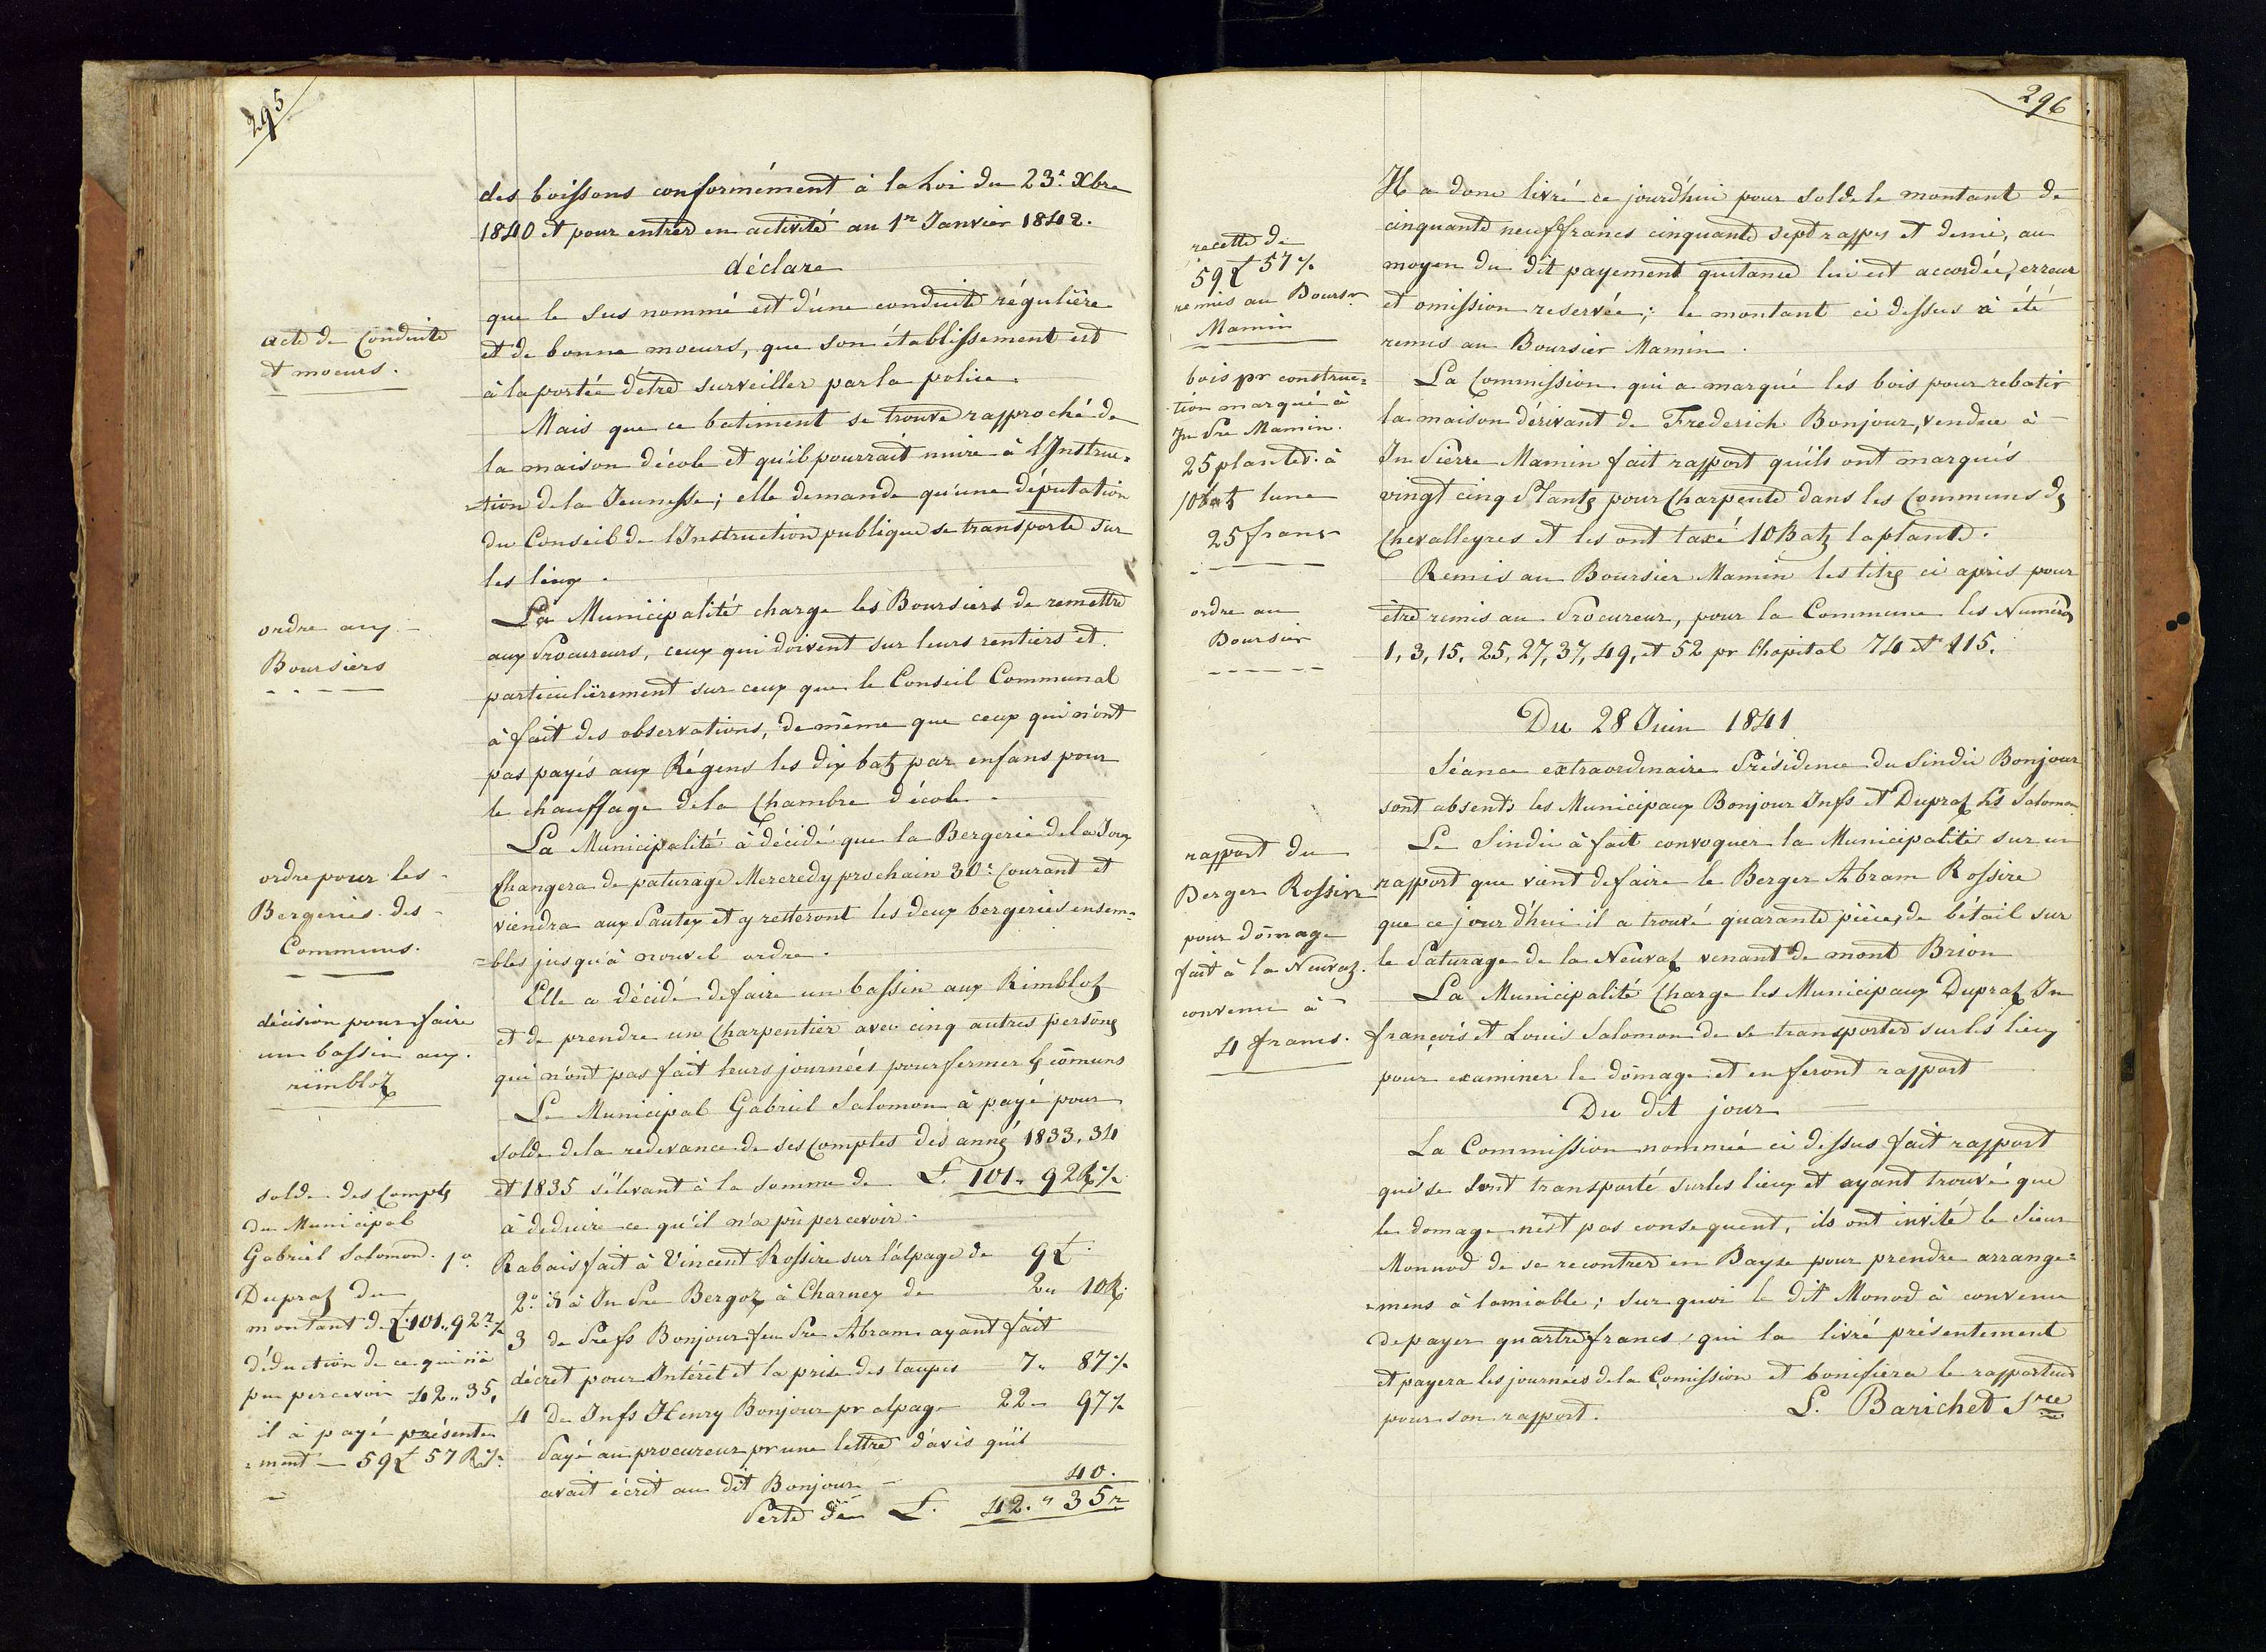 295
des boissons conformément à la Loi du 23e. Xbre
1840 et pour entrer en activité au 1er Janvier 1842.
déclare
que le sus nommé est d'une conduite régulière
et de bonne moeurs, que son établissement est
à la portée d'être surveiller par la police.
acte de Conduite
et moeurs.
Mais que ce batiment se trouve rapproché de
la maison d'école et qu'il pourrait nuire à l'Instruc=
=tion de la Jeunesse; elle demande qu'une députation
du Conseil de l'Instruction publique se transporte sur
les lieux.
ordre aux
Boursiers
La Municipalité charge les Boursiers de remettre
aux Procureurs, ceux qui doivent sur leurs rentiers et
particulièrement sur ceux que le Conseil Communal
à fait des observations, de même que ceux qui n'ont
pas payés aux Régens les dix batz par enfans pour
le chauffage de la Chambre d'école.
ordre pour les
Bergeries des
Communs.
La Municipalité à décidé que la Bergerie de la Joux
Changera de paturage Mercredy prochain 30e. Courant et
viendra aux Pautex et y resteront les deux bergeries ensem=
=bles jusqu'à nouvel ordre.
décision pour faire
un bassin aux
rimblotz
Elle a décidé de faire un bassin aux Rimblotz
et de prendre un Charpentier avec cinq autres persones
qui n'ont pas fait leurs journées pour fermer les comuns
Le Municipal Gabriel Salomon à payé pour
solde de la redevance de ses Comptes des anné 1833, 34
et 1835 s'élevant à la somme de L. 101 " 92 R 1/2
à deduire ce qu'il n'a pû percevoir.
solde des Comptes
du Municipal
Gabriel Salomon
Dupraz du
montant de L. 101 " 92 r 1/2
déduction de ce qui n'a
pu percevoir 42 " 35.
il à payé présente=
=ment 59 L 57 R 1/2
1o. Rabais fait à Vincent Rossire sur l'alpage de 9 L.
2o. id à Jn Pre Bergoz à Charney de 2 " 10 R.
3 de Pre fs Bonjour feu Pre Abram ayant fait
décret pour Intérêt et la prise des taupes 7 " 87 1/2
4 de Jn fs Henry Bonjour pr alpage 22 " 97 1/2
Payé au procureur pr une lettre d'avis qu'il
avait écrit au dit Bonjour 40.
Perte de L. 42 " 35 r
296
recette de
59 L 57 1/2
remis au Boursr
Mamin
Il a donc livré ce jourd'hui pour solde le montant de
cinquante neuf francs cinquante sept rappes et demie, au
moyen du dit payement quitance lui est accordée, erreur
et omission reservée; le montant ci dessus à été
remis au Boursier Mamin.
bois pr construc=
tion marqué à
Jn Pre Mamin.
25 plantes à
10 batz l'une
25 frans
La Commission qui a marqué les bois pour rebatir
la maison dérivant de Frederich Bonjour, vendue à
Jn Pierre Mamin fait rapport qu'ils ont marqués
vingt cinq Plantes pour Charpente dans les Communs des
Chevalleyres et les ont taxé 10 Batz la plante.
ordre au
Boursier
Remis au Boursier Mamin les titres ci après pour
être remis au Procureur, pour la Commune les Numéros
1, 3, 15, 25, 27, 37, 49, et 52 pr l'hopital 74 et 115.
Du 28 Juin 1841
Séance extraordinaire Présidence du Sindic Bonjour
sont absents les Municipaux Bonjour Jn fs et Dupraz Ls Salomon
rapport du
Berger Rossire
pour domage
fait à la Neuvaz
convenu à
4 francs.
Le Sindic à fait convoquer la Municipalité sur un
rapport que vient de faire le Berger Abram Rossire
que ce jour d'hui il a trouvé quarante pièces de bétail sur
le Paturage de la Neuvaz venant de mont Brion
La Municipalité Charge les Municipaux Dupraz Jn
françois et Louis Salomon de se transporter sur les lieux
pour examiner le domage et en feront rapport
Du dit jour
La Commission nommée ci dessus fait rapport
qui se sont transporté sur les lieux et ayant trouvé que
le domage n'est pas consequent, ils ont invité le Sieur
Monnod de se recontrer en Bayse pour prendre arrange=
=mens à lamiable; sur quoi le dit Monod à convenu
de payer quartre francs qui la livré présentement
et payera les journées de la Comission et bonifiera le rapporteur
pour son rapport.
L. Barichet Sre